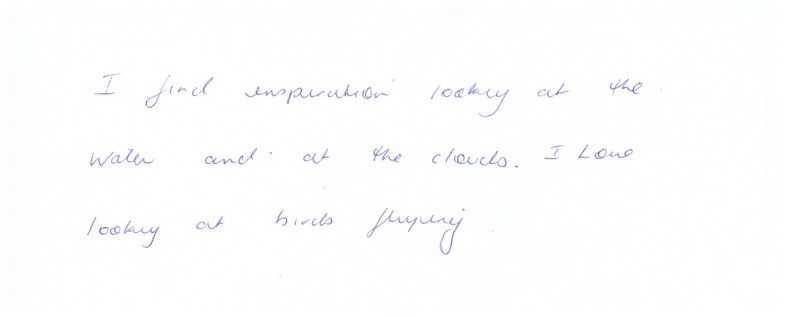 I find inspiration looking at the
water and at the clouds. I Love
looking at birds flying